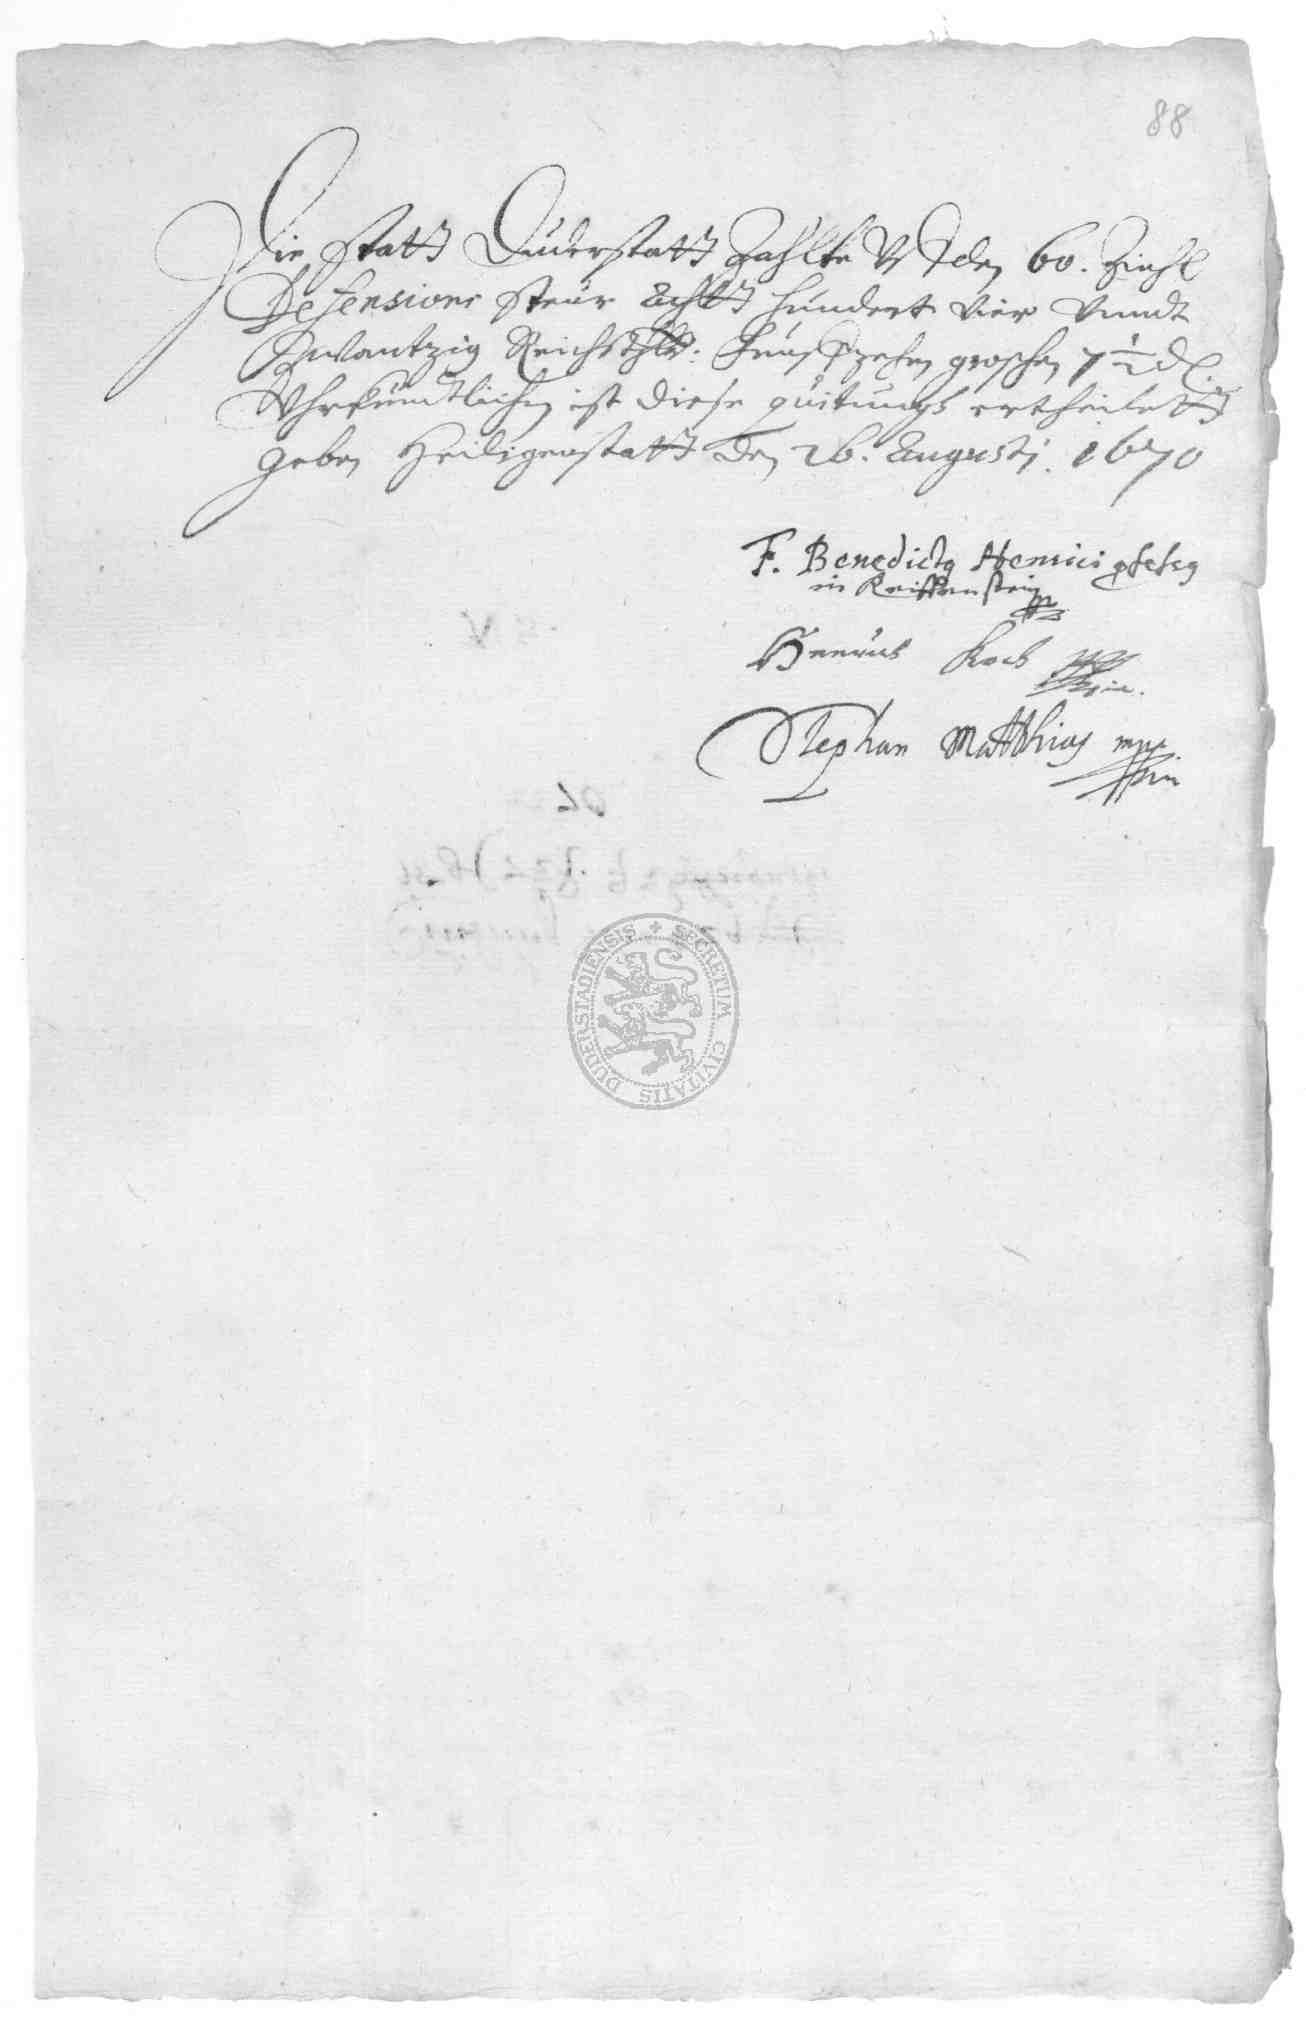 88
Die statt Duderstatt Zahlte Vf den 60. Ziehl
Defensions steur Acht hundert vier Vnndt
Zwantzig Reichsthlr: funffzehen groschen 7 1/2 d
Vhrkundtlichen ist diese quitung ertheilet
geben Heiligenstatt den 26. Augusti. 1670
F. Benedict9 Henrici
in Reiffenstein
Henrich Koch
Stephan Matthias mpp
SECRETUM CIVITATIS DUDERSTADIENSIS